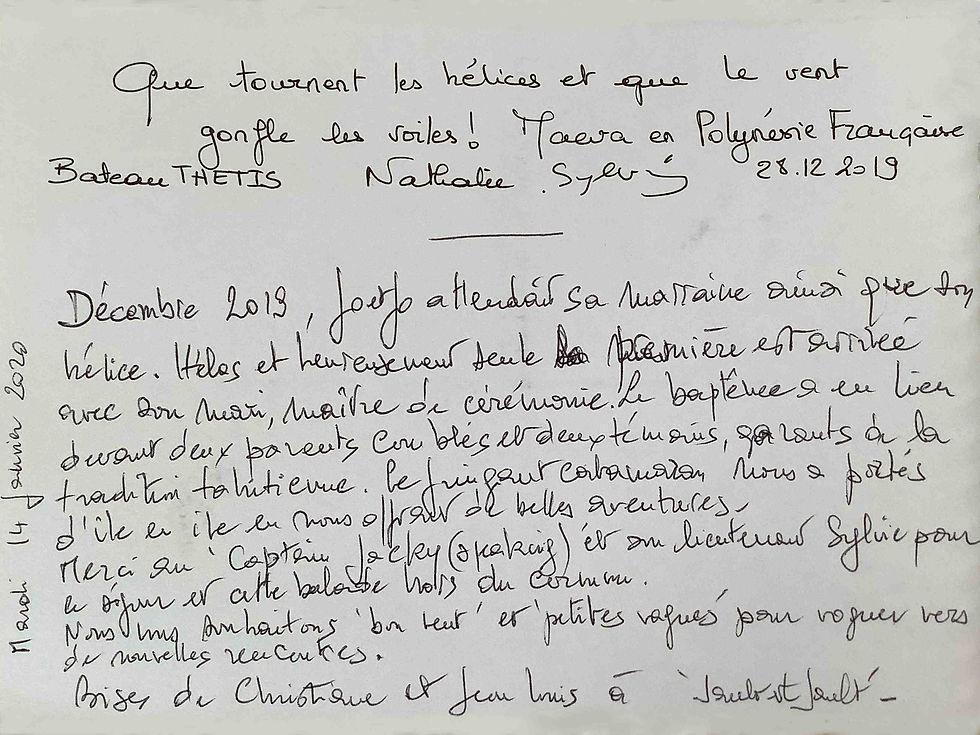 Que tournent les hélices et que le vent
gonfle les voiles! Maeva en Polynésie Française
Bateau THETIS Nathalie Sylvie 28.12 2019
Décembre 2019, attendait sa marraine ainsi que son
hélice. Hélas et heureusement seule la première est arrivée
avec son mari, maître de cérémonie. Le baptême a eu lieu
devant deux parents comblés et deux témoins, garants de la
tradition tahitienne. Le fringant catamaran nous a portés
d'île en île en nous offrant de belles aventures.
Merci au 'Captain Jacky (speaking) et son lieutenant Sylvie pour
ce séjour et cette balade hors du commun.
Nous vous souhaitons 'bon vent' et 'petites vagues' pour voguer vers
de nouvelles rencontres.
Bises de Christiane et Jean Louis à
Mardi 14 Janvier 2020